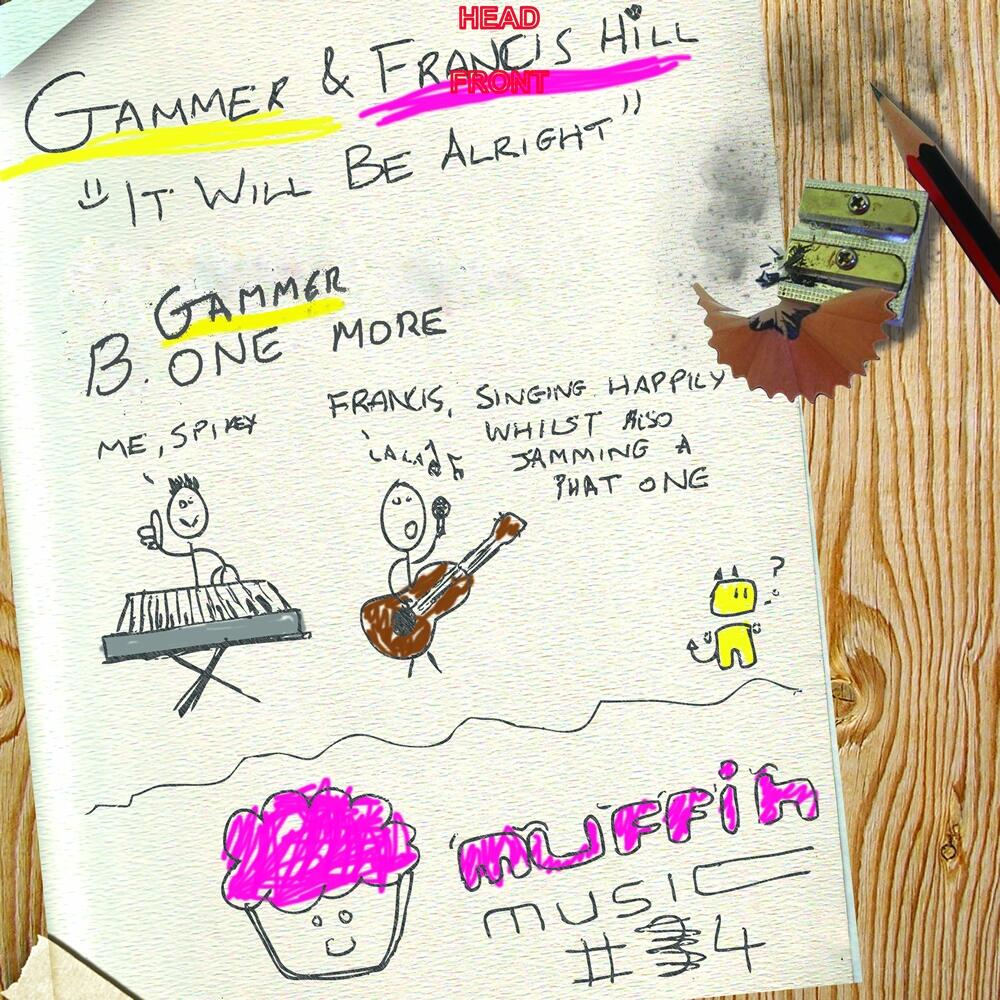 HEAD
GAMMER & FRANCIS HILL
FRONT
"IT WILL BE ALRIGHT"
GAMMER
B. ONE MORE
ME, SPIKEY
FRANCIS, SINGING HAPPILY
WHILST ALSO
JAMMING A
PHAT ONE
LALA
?
muffin
music
#4